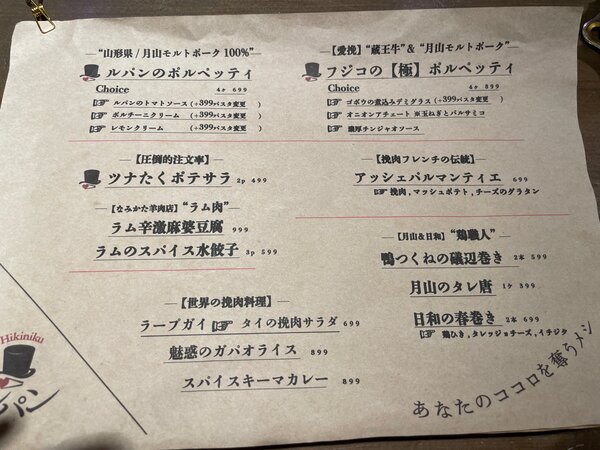 "山形県/月山モルトポーク100%"
ルパンのポルペッティ
Choice 4ケ 699
ルパンのトマトソース(+399パスタ変更 )
ポルチーニクリーム (+399パスタ変更 )
レモンクリーム (+399パスタ変更 )
【圧倒的注文率】
ツナたくポテサラ 2p 499
【なみかた羊肉店】"ラム肉"
ラム辛激麻婆豆腐 999
ラムのスパイス水餃子 3p 599
【世界の挽肉料理】
ラープガイ タイの挽肉サラダ 699
魅惑のガパオライス 899
スパイスキーマカレー 899
【愛挽】"蔵王牛"&"月山モルトポーク"
フジコの【極】ポルペッティ
Choice 4ケ 899
ゴボウの煮込みデミグラス(+399パスタ変更 )
オニオンアチェート ※玉ねぎとバルサミコ
濃厚チンジャオソース
【挽肉フレンチの伝統】
アッシェパルマンティエ 699
挽肉,マッシュポテト,チーズのグラタン
【月山&日和】"鶏職人"
鴨つくねの磯辺巻き 2本 599
月山のタレ唐 1ケ 399
日和の春巻き 2本 699
鶏ひき,タレッジョチーズ,イチジク
あなたのココロを奪うメシ
Hikiniku
パン